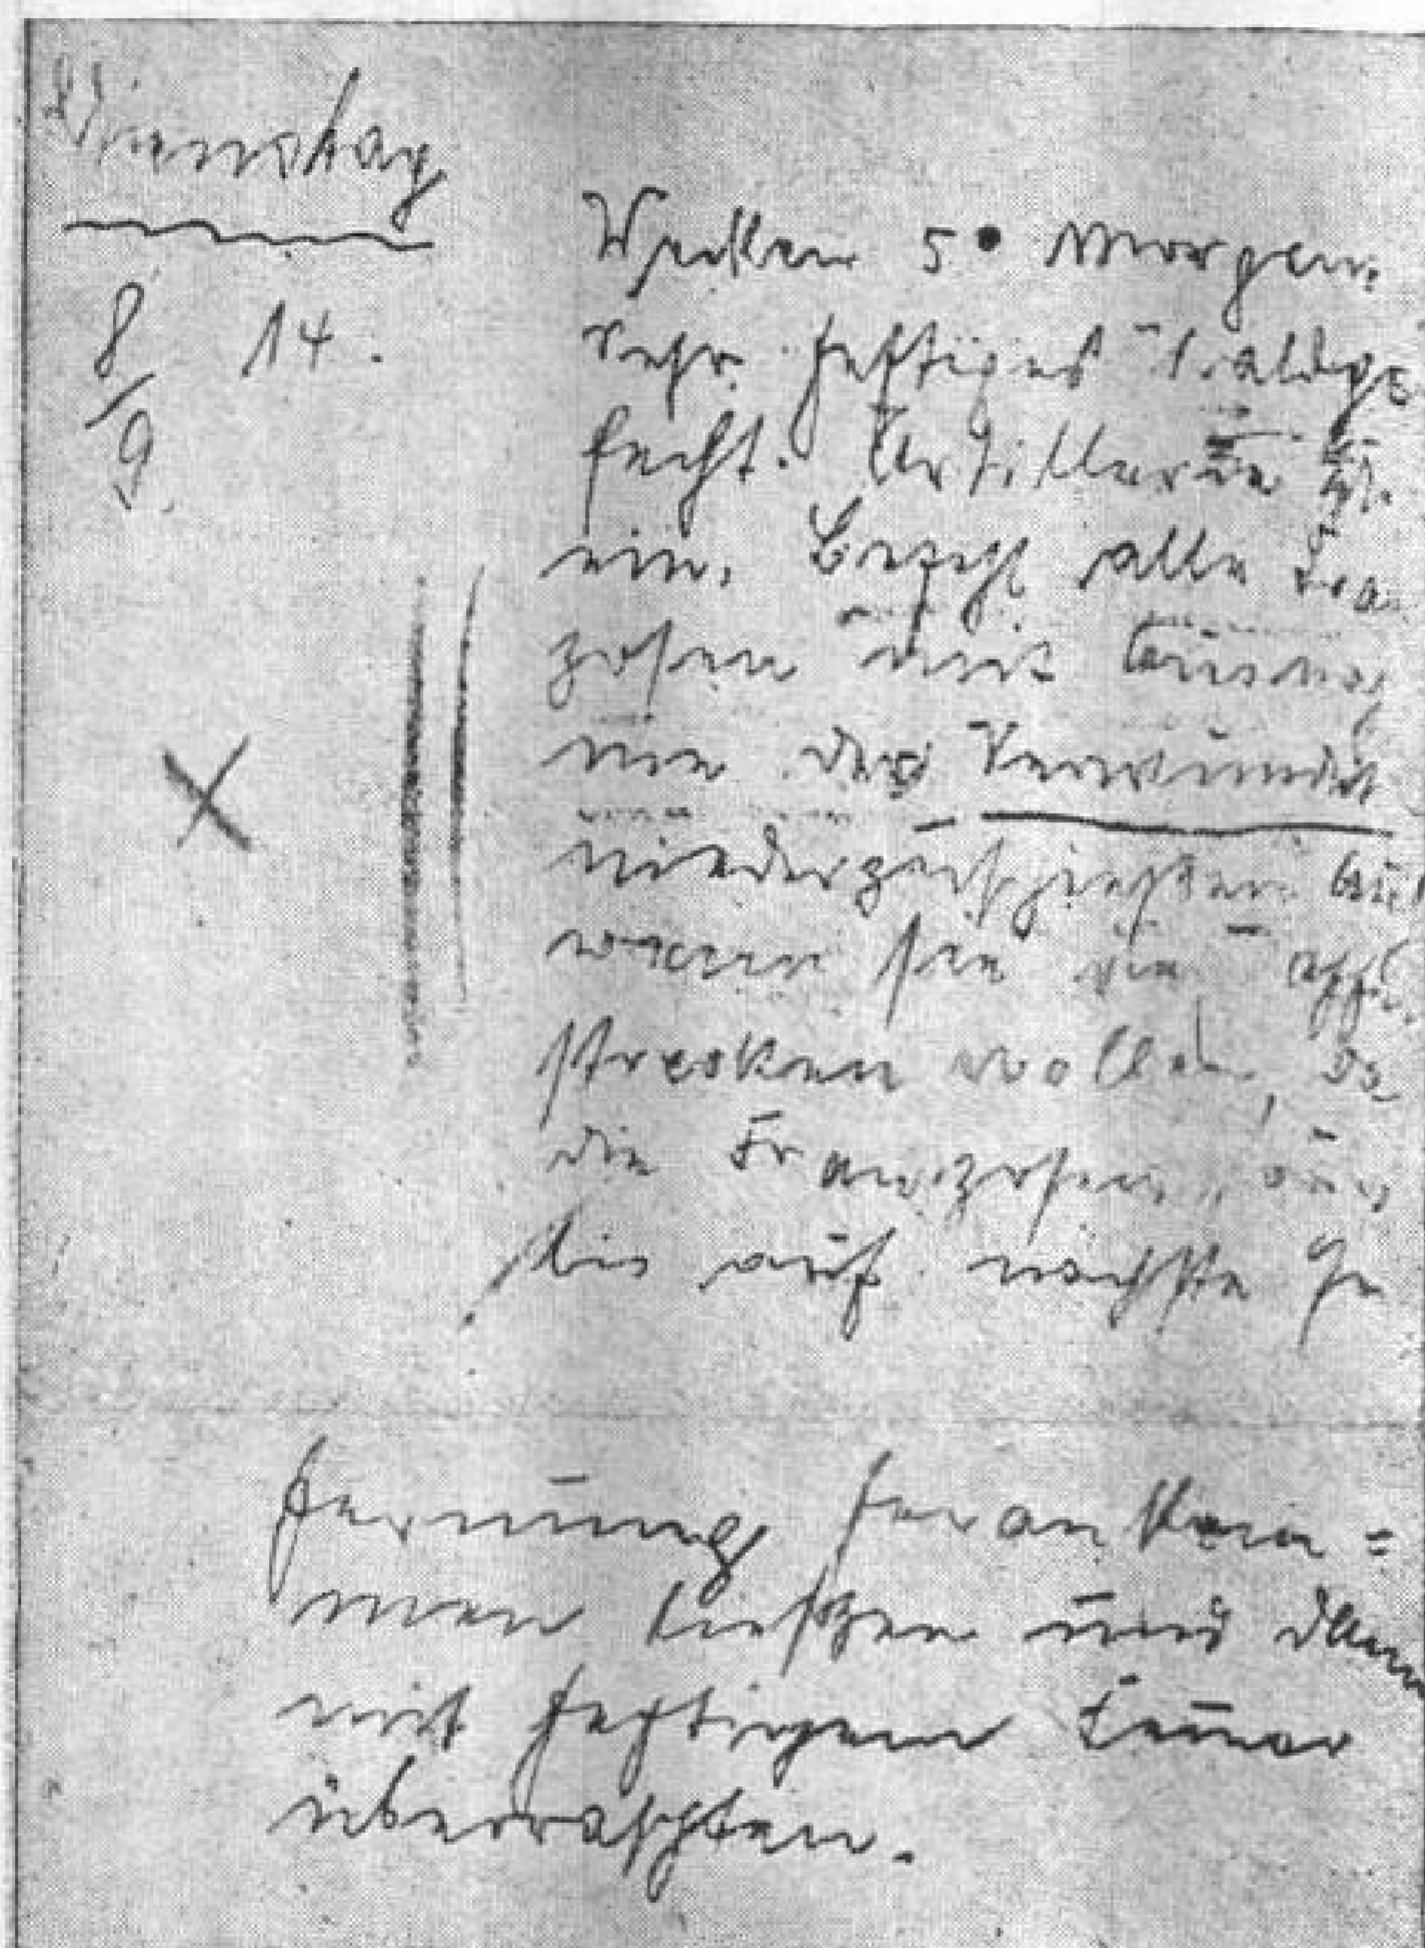 Dienstag
8/9. 14.
Wecken 5° Morgen.
sehr heftiges Waldge
fecht. Artillerie
ein. Befehl alle Fran
zosen mit Ausnah
me der Verwundet
niederzuschießen auch
wenn sie die
strecken wollen, da
die Franzosen uns
bis auf nächste En
fernung herankom=
men ließen und dann
mit heftigem Feuer
überraschten.